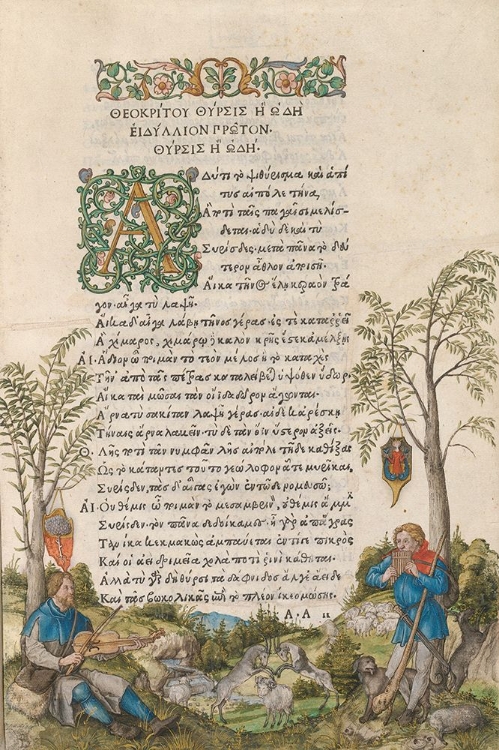 ΘΕΟΚΡΙΤΟΥ ΘΥΡΣΙΣ Ἢ ᾨΔΗ
ΕἰΔΥΛΛΙΟΝ ΠΡΩΤΟΝ.
ΘΥΡΣΙΣ Ἢ ᾨΔΗ.
ΑΔύ τι τὸ ψιθύρισμα καὶ ἁ πί
τυς αἰπόλε τήνα,
Ἃ ποτὶ ταῖς παγαῖσι μελίσ-
δεται. ἁδὺ δὲ καὶ τὺ
Συρίσδες. μετὰ πᾶνα τὸ δεύ
τερον ἆθλον ἀποισῇ.
Αἴκα τῆνος ἕλῃ κεραὸν τρά
γον. αἶγα τὺ λαψῇ.
Αἴκα δ' αἶγα λάβῃ τῆνος γέρας. ἐς τὲ καταῤῥεῖ
Ἁ χίμαρος, χιμάρω καλὸν κρῆς ἔστε κ' ἀμέλξῃς
ΑΙ. Ἅδιον ὦ ποιμὰν τὸ τεὸν μέλος ἢ τὸ καταχὲς
Τῆν' ἀπὸ τᾶς πέτρας καταλείβεται ὑψόθεν ὕδωρ.
Αἴκα ταὶ μῶσαι τὰν οἴιδα δῶρον ἄγωνται.
Ἄρνα τὺ σακίταν λαψῇ γέρας. αἰ δέ κ' ἀρέσκῃ
Τήναις ἄρνα λαβεῖν. τὺ δὲ τὰν ὄϊν ὕστερον ἀξεῖς.
Θ. Λῇς ποτὶ τᾶν νυμφᾶν λῇς αἰπόλε τῇδε καθίξας
Ὡς τὸ κάταντες τοῦτο γεώλοφον ἇτε μυρῖκαι,
Συρίσδεν. τὰς δ' αἶγας ἐγὼν ἐν τῷδε νομευσῶ;
ΑΙ Οὐ θέμις ὦ ποιμὰν τὸ μεσαμβρινόν. οὐ θέμις ἄμμιν
Συρίσδεν. τὸν πᾶνα δεδοίκαμες. ἦ γὰρ ἀπ' ἄγρας
Τανίκα κεκμακὼς ἀμπαύεται. ἐντί γε πικρὸς
Καί οἱ ἀεὶ δριμεῖα χολὰ ποτὶ ῥινὶ κάθηται.
Ἀλλὰ τὺ γὰρ δὴ θύρσι τὰ δάφνιδος ἄλγε' ἀείδες
Καὶ τᾶς βωκολικᾶς ἐπὶ τὸ πλέον ἵκεο μώσης.
A.A ii